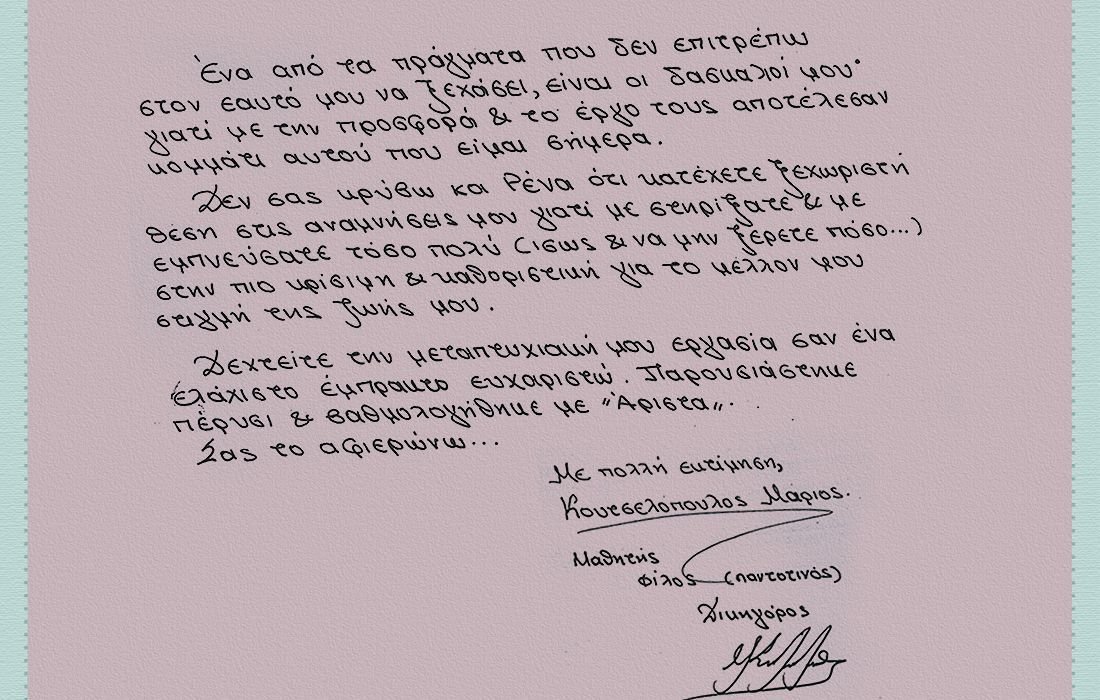 Ένα από τα πράγματα που δεν επιτρέπω
στον εαυτό μου να ξεχάσει, είναι οι δασκαλοί μου·
γιατί με την προσφορά & το έργο τους αποτέλεσαν
κομμάτι αυτού που είμαι σήμερα.
Δεν σας κρύβω και Ρένα ότι κατέχετε ξεχωριστή
θέση στις αναμνήσεις μου γιατί με στηρίξατε & με
εμπνεύσατε τόσο πολύ (ισως & να μην ξέρετε πόσο...)
στην πιο κρίσιμη & καθοριστική για το μέλλον μου
στιγμή της ζωής μου.
Δεχτείτε την μεταπτυχιακή μου εργασία σαν ένα
ελάχιστο έμπρακτο ευχαριστώ. Παρουσιάστηκε
πέρυσι & βαθμολογήθηκε με "Άριστα".
Σας το αφιερώνω...
Με πολλή εκτίμηση,
Κουτσελόπουλος Μάριος.
Μαθητής
Φίλος (παντοτινός)
Δικηγόρος